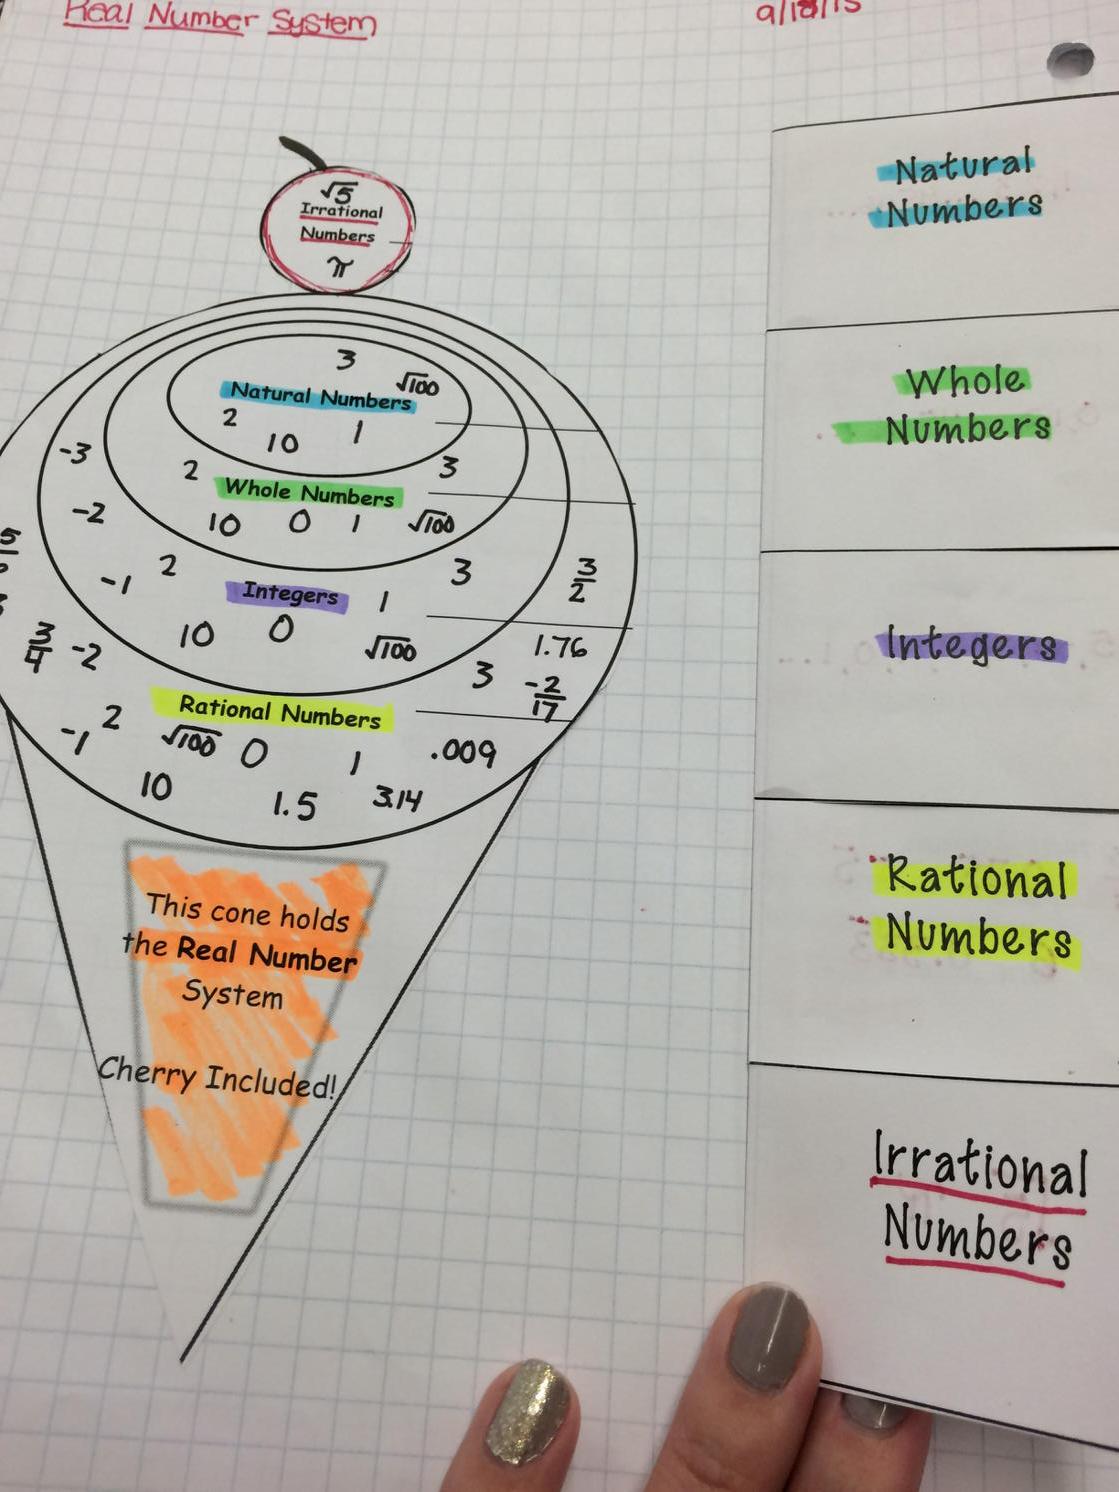 Real Number System
9/18/15
√5
Irrational
Numbers
π
3
√100
Natural Numbers
2
10
1
-3
2
3
Whole Numbers
10
0
1
√100
-2
-1
2
3
Integers
1
10
0
√100
3/2
1.76
3/4
-2
3
-2/17
Rational Numbers
2
-1
√100
0
1
.009
10
1.5
3.14
This cone holds
the Real Number
System
Cherry Included!
Natural
Numbers
Whole
Numbers
Integers
Rational
Numbers
Irrational
Numbers